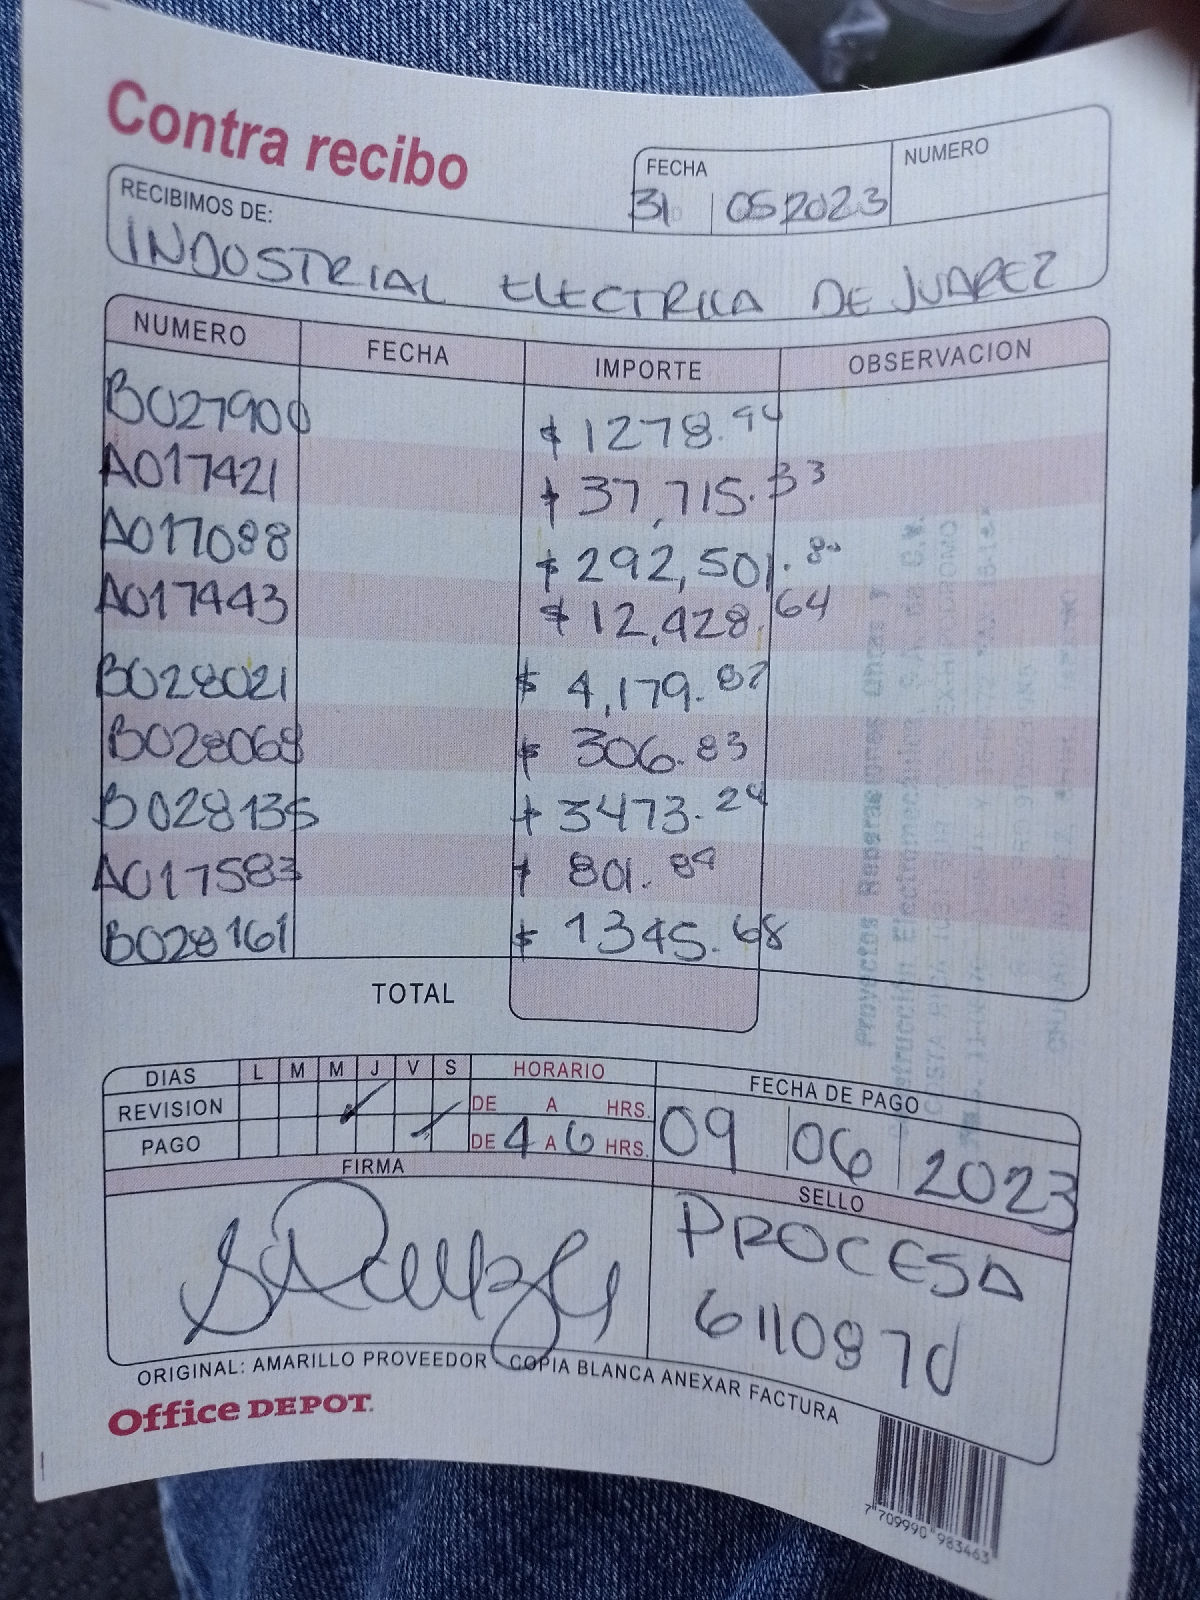 Contra recibo
FECHA
NUMERO
31 05 2023
RECIBIMOS DE:
INDUSTRIAL ELECTRICA DE JUAREZ
NUMERO FECHA IMPORTE OBSERVACION
B027900 $ 1278.94
A017421 $ 37,715.33
A017088 $ 292,501.80
A017443 $ 12,428.64
B028021 $ 4,179.87
B028068 $ 306.83
B028135 $ 3473.24
A017583 $ 801.84
B028161 $ 1345.68
TOTAL
DIAS L M M J V S HORARIO FECHA DE PAGO
REVISION DE A HRS.
PAGO DE 4 A 6 HRS. 09 06 2023
FIRMA SELLO
PROCESA
6110870
ORIGINAL: AMARILLO PROVEEDOR COPIA BLANCA ANEXAR FACTURA
Office DEPOT.
7 709990 983463